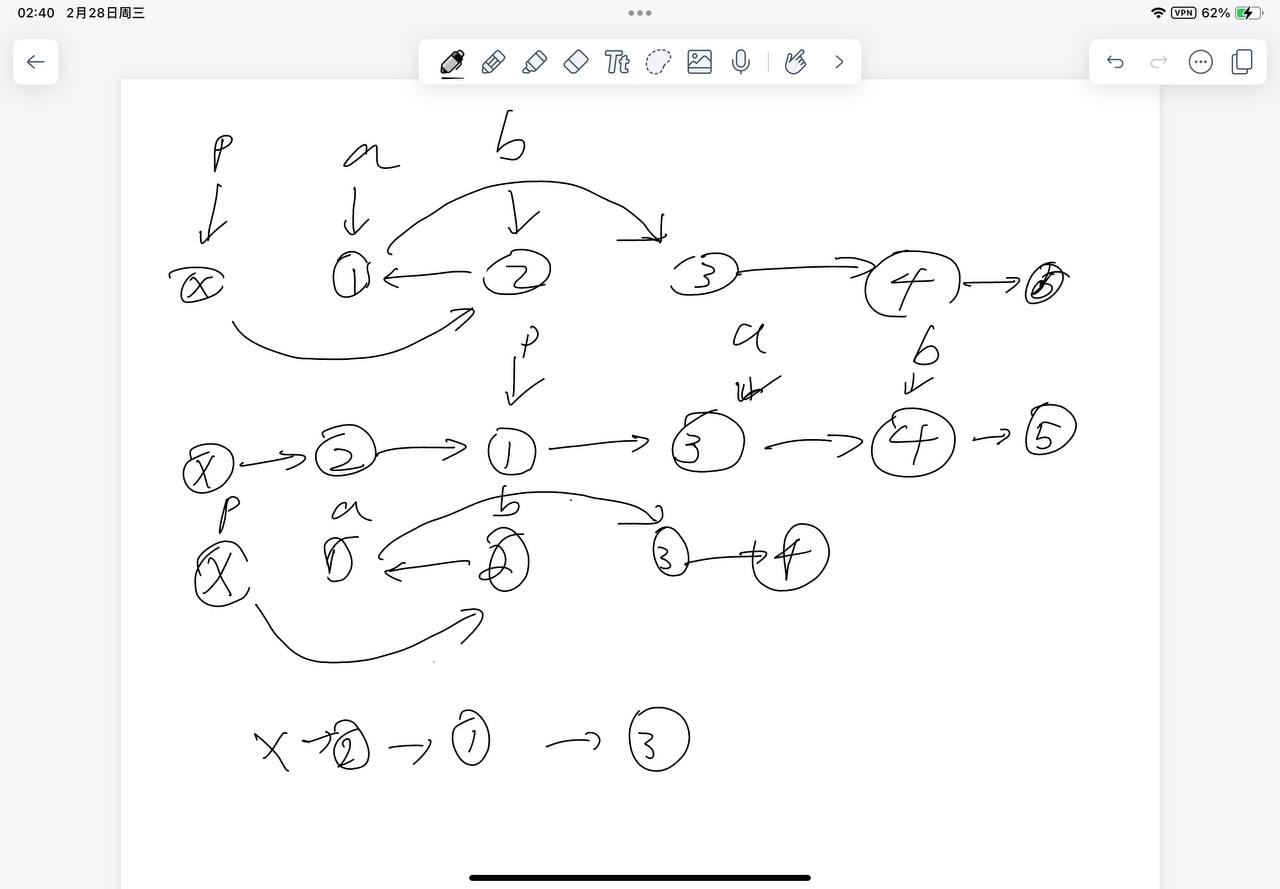 02:40 2月28日周三
VPN 62%
Tt
p a b
x 1 2 3 4 5
p a b
x 2 1 3 4 5
p a b
x 1 2 3 4
x 2 1 3